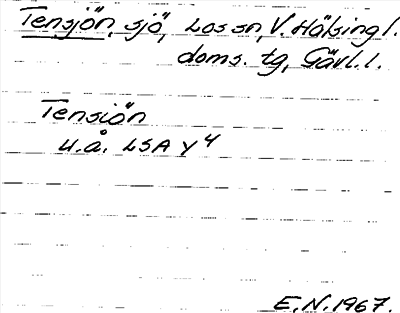 Tensjön, sjö, Los sn, V. Hälsingl.
doms. tg, Gävl. l.
Tensiön
u.å. LSA Y4
E.N. 1967.